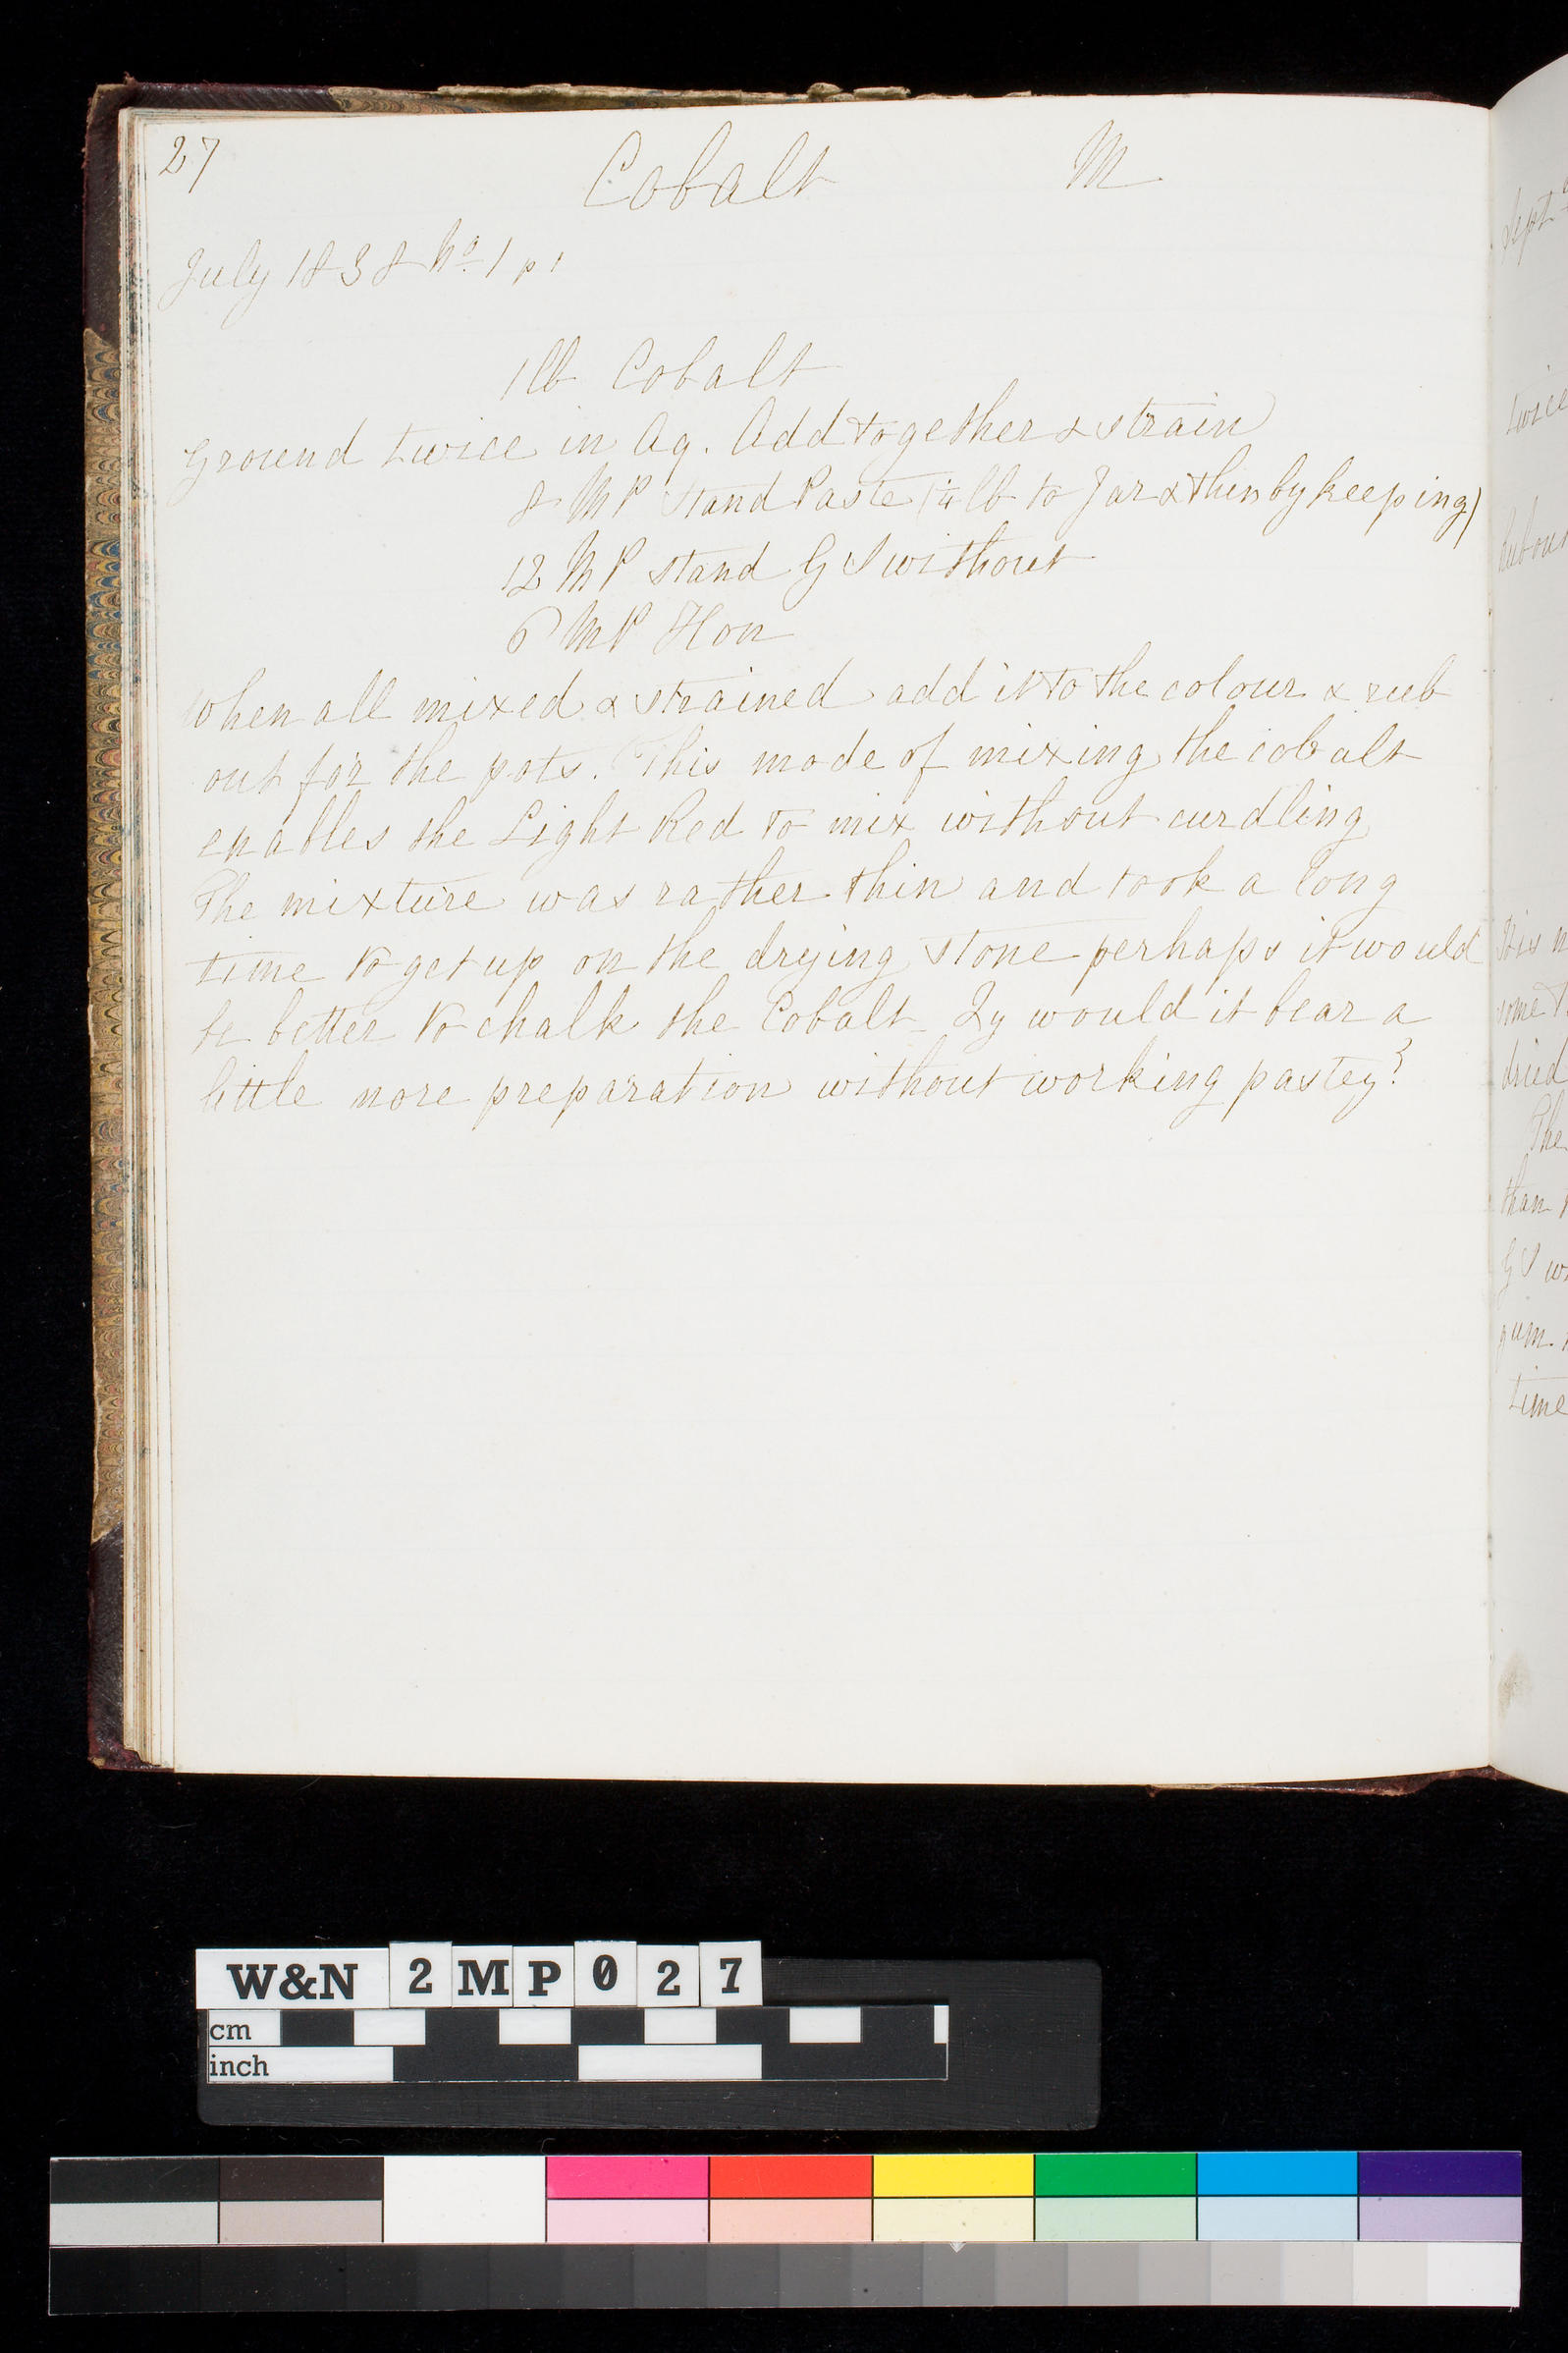 27
Cobalt M
July 1838 No. 1 p 1
1 lb Cobalt
Ground twice in Aq. Add together & strain
8 MP stand Paste (¼ lb to Jar & thin by keeping)
12 MP stand G S without
6 MP Hon
When all mixed & strained add it to the colour & rub
out for the pots. This mode of mixing the cobalt
enables the Light Red to mix without curdling
The mixture was rather thin and took a long
time to get up on the drying stone perhaps it would
be better to chalk the Cobalt - Qy would it bear a
little more preparation without working pastey?
Sept
twice
some
dried
The
than
G S
gum.
time
W&N 2MP027
cm
inch